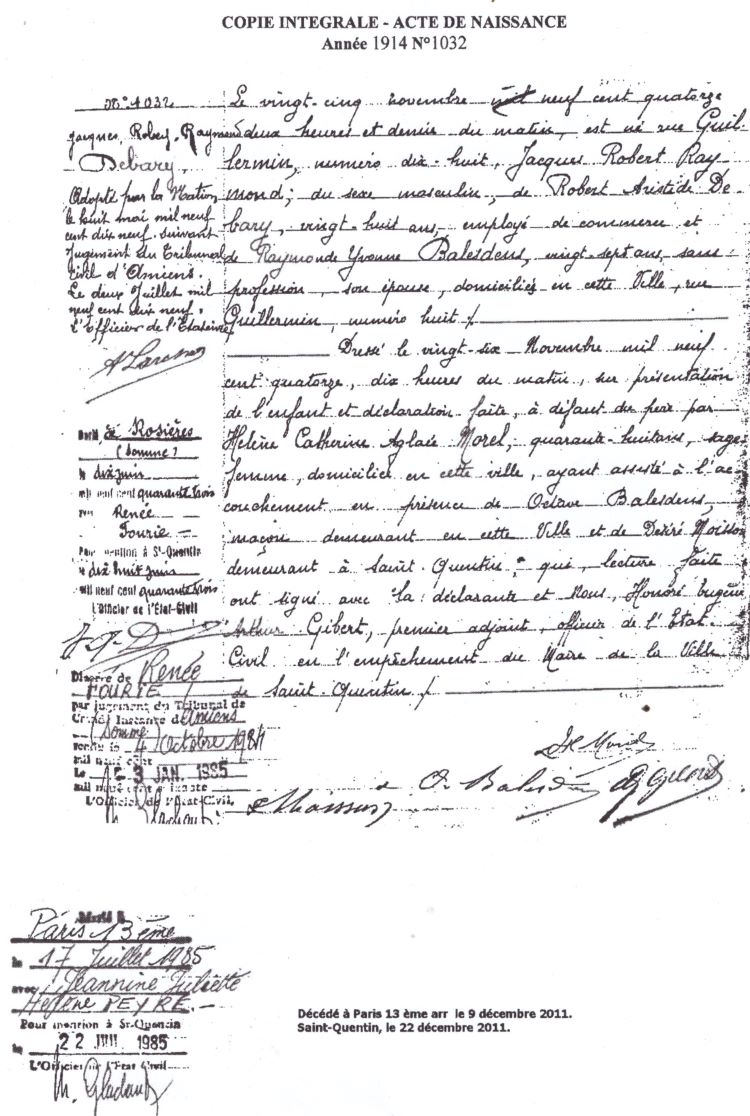 COPIE INTEGRALE - ACTE DE NAISSANCE
Année 1914 N°1032
N° 1032
Jacques, Robert, Raymond
Debary,
Adopté par la Nation
le huit mai mil neuf
cent dix neuf. suivant
jugement du Tribunal
Civil d'Amiens.
Le deux Juillet mil
neuf cent dix neuf.
L'Officier de l'Etat civil
Marié à Rosières
(Somme)
le dix juin
mil neuf cent quarante trois
avec Renée
Fourie
Pour mention à St-Quentin
le dix huit juin
mil neuf cent quarante trois
L'Officier de l'Etat-Civil
Divorcé de Renée
FOURIE
par jugement du Tribunal de
Grande Instance d'Amiens
(Somme)
rendu le 4 Octobre 1984
mil neuf cent
Le - 3 JAN. 1985
mil neuf cent
L'Officier de l'Etat-Civil,
Le vingt-cinq novembre mil neuf cent quatorze
deux heures et demie du matin, est né rue Guil-
lermin, numéro dix-huit, Jacques Robert Ray
mond; du sexe masculin, de Robert Aristide De-
bary, vingt-huit ans, employé de commerce et
de Raymonde Yvonne Balesdens, vingt-sept ans, sans
profession, son épouse, domiciliés en cette Ville, rue
Guillermin, numéro huit /
Dressé le vingt-six Novembre mil neuf
cent quatorze, dix heures du matin, sur présentation
de l'enfant et déclaration faite, à défaut du père par
Hélène Catherine Aglaée Morel, quarante-huit ans, sage
femme, domiciliée en cette ville, ayant assisté à l'ac-
couchement en présence de Octave Balesdens,
maçon demeurant en cette Ville et de Désiré Moisson
demeurant à Saint-Quentin, qui, lecture faite
ont signé avec la déclarante et Nous, Honoré Eugène
Arthur Gibert, premier adjoint, officier de l'Etat-
Civil en l'empêchement du Maire de la Ville
de Saint-Quentin /
Marié à
Paris 13ème
le 17 Juillet 1985
avec Jeannine Juliette
Hélène PEYRE.
Pour mention à St-Quentin
le 22 JUIL 1985
L'Officier de l'Etat Civil
Décédé à Paris 13 ème arr le 9 décembre 2011.
Saint-Quentin, le 22 décembre 2011.